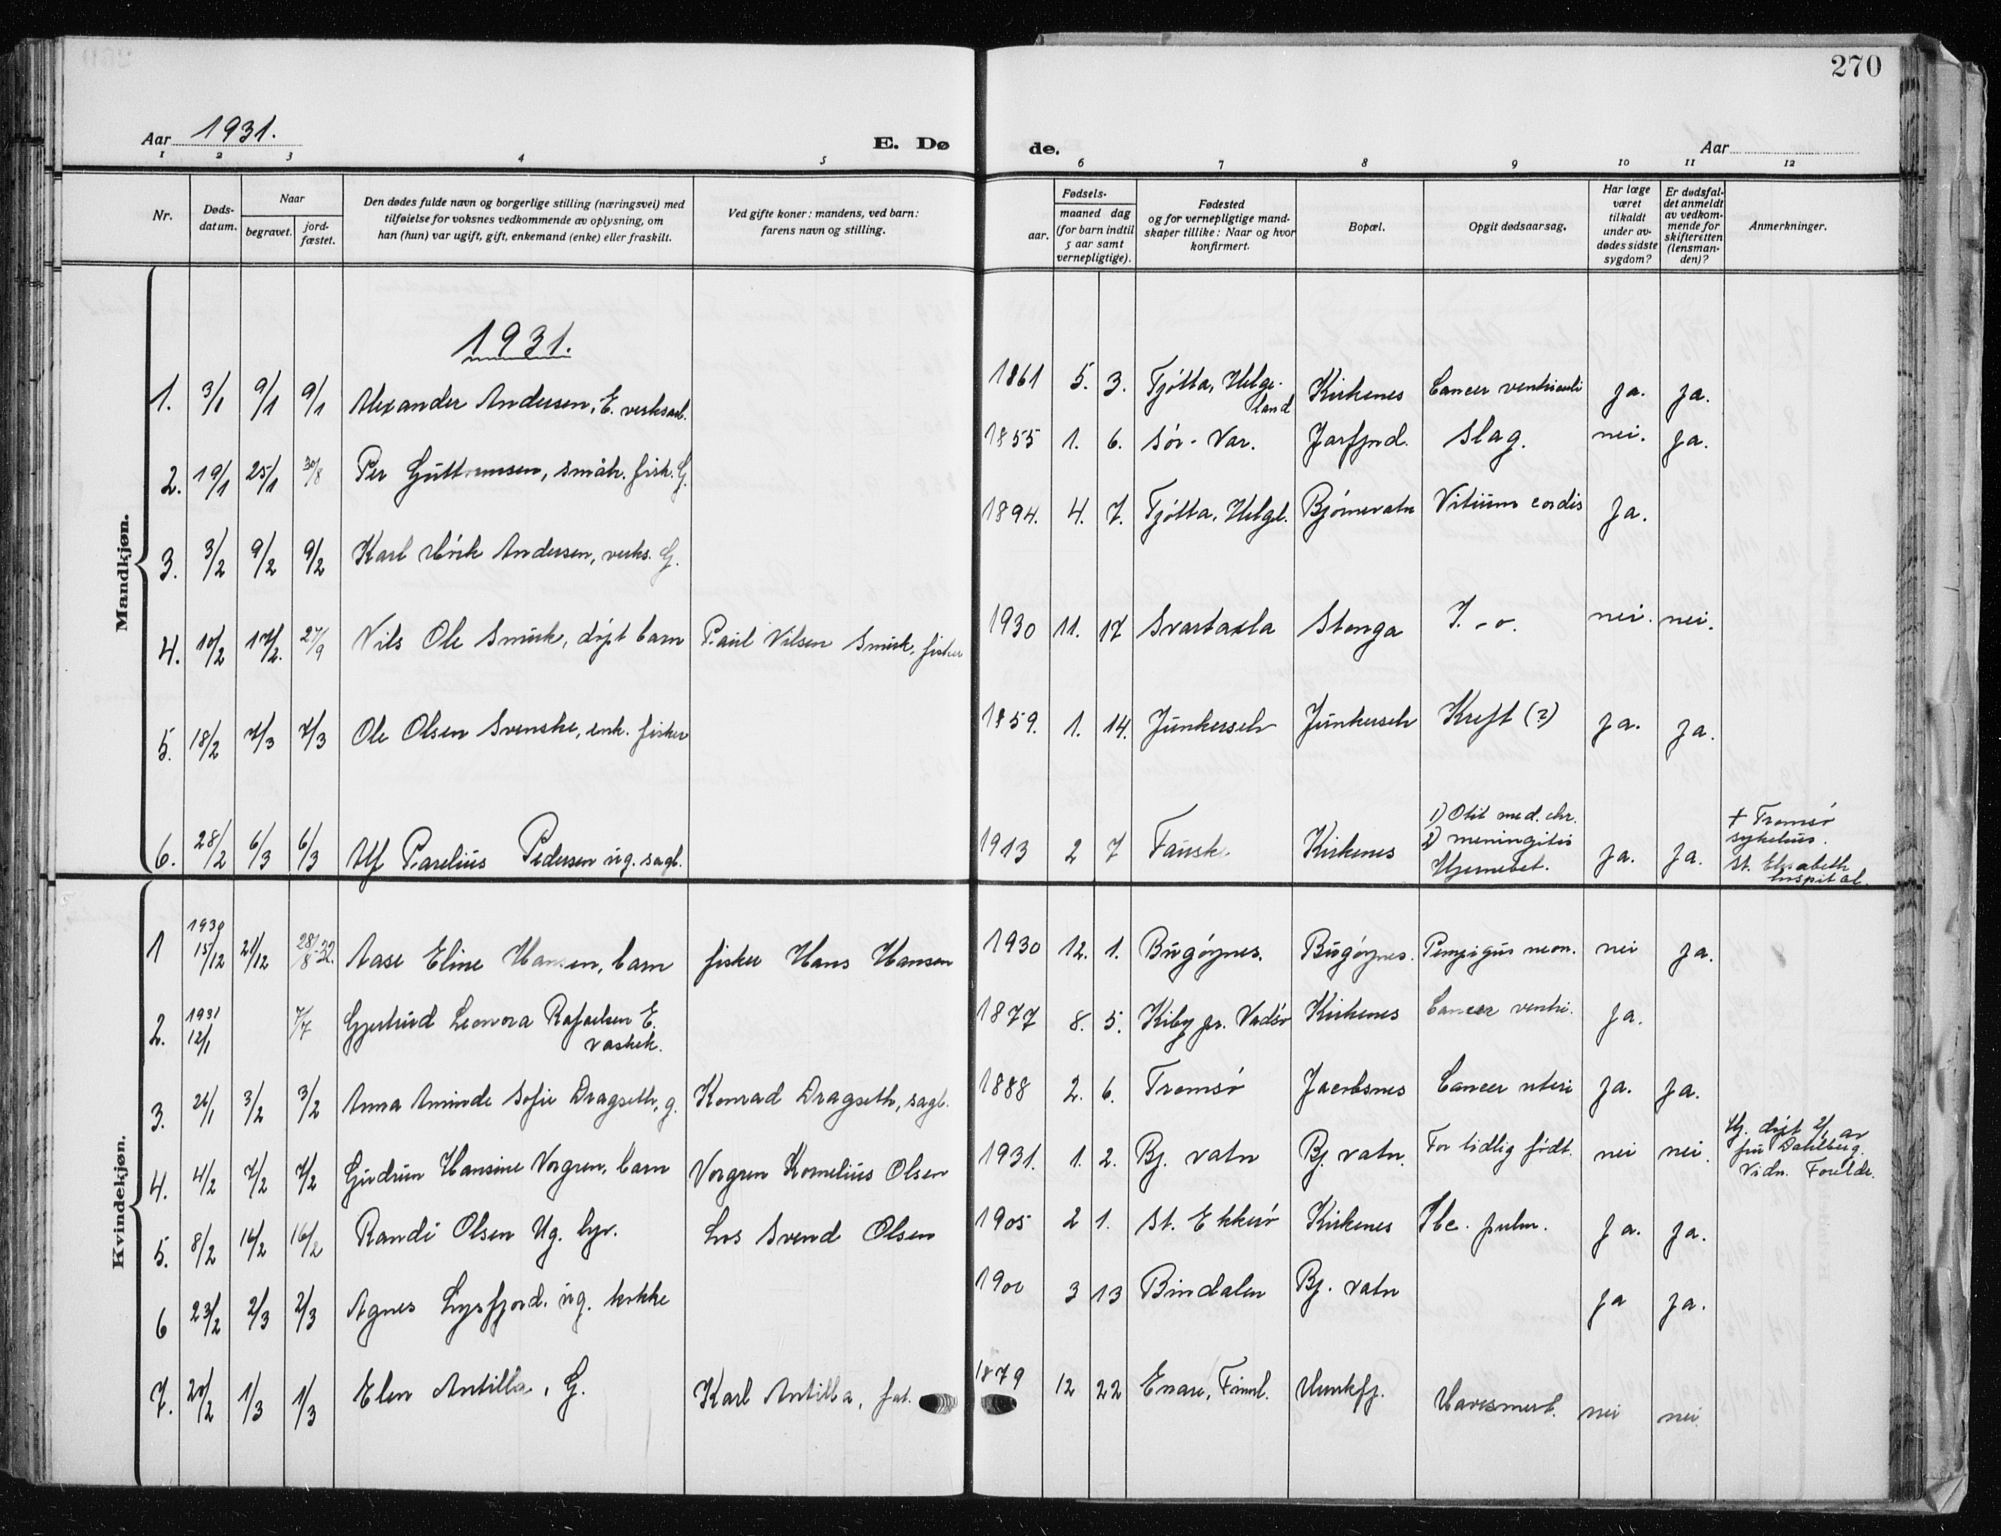 270
Aar 1931.
E. Dø de.
Aar
1 2 3 4 5 6 7 8 9 10 11 12
Nr.
Døds-
datum.
Naar
begravet.
jord-
fæstet.
Den dødes fulde navn og borgerlige stilling (næringsvei) med
tilføielse for voksnes vedkommende av oplysning, om
han (hun) var ugift, gift, enkemand (enke) eller fraskilt.
Ved gifte koner: mandens, ved barn:
farens navn og stilling.
Fødsels-
aar.
maaned dag
(for barn indtil
5 aar samt
vernepligtige).
Fødested
og for vernepligtige mand-
skaper tillike: Naar og hvor
konfirmert.
Bopæl.
Opgit dødsaarsag.
Har læge
været
tilkaldt
under av-
dødes sidste
sygdom?
Er dødsfal-
det anmeldt
av vedkom-
mende for
skifteretten
(lensman-
den)?
Anmerkninger.
Mandkjøn.
1931.
1. 3/1 9/1 9/1 Alexander Andersen, E. verksarb. 1861 5. 3. Tjøtta, Helge-
land Kirkenes Cancer ventriculi ja. ja.
2. 19/1 25/1 30/8 Per Guttormsen, småbr. fisk. G. 1855 1. 6. Sør-Var. Jarfjord. Slag. nei. ja.
3. 3/2 9/2 9/2 Karl Andersen, verks. G. 1894. 4. 7. Tjøtta, Helgel. Bjørnevatn Vitium cordis ja.
4. 10/2 17/2. 27/9 Nils Ole Smuk, døpt barn Paul Nilsen Smuk, fisker 1930 11. 17 Svartaxla Stonga nei. nei.
5. 18/2 7/3 7/3 Ole Olsen Svenske, enk. fisker 1859. 1. 14. Junkerselv Junkerselv Kreft (?) ja. ja.
6. 28/2 6/3 6/3 Alf Parelius Pedersen ug. sagb. 1913 2 7 Fauske Kirkenes 1) Otit med. chr.
2) meningitis
Hjernebet. ja. ja. + Tromsø
sykehus.
St. Elisabeth
hospital.
Kvindekjøn.
1 1930
15/12 21/12 28/8-32. Aase Eline Hansen, barn fisker Hans Hansen 1930 12. 1. Bugøynes. Bugøynes. Pempigus neon. nei ja.
2. 1931
12/1 7/7 Gjertrud Leonora Rafaelsen E.
vaskek. 1877 8. 5. Kiby pr. Vadsø Kirkenes Cancer ventri. ja.
3. 26/1 3/2 3/2 Anna Aminde Sofie Dragseth, g. Konrad Dragseth, sagb. 1888 2. 6. Tromsø Jacobsnes Cancer uteri ja. ja.
4. 4/2 7/2 7/2 Gudrun Hansine Vorgren, barn Vorgren Kornelius Olsen 1931. 1. 2. Bj. vatn Bj. vatn. For tidlig født. nei nei. Hj. døpt 2/1 av
fru Dahlberg.
Vidn. Foreldr.
5. 8/2 16/2 16/2 Randi Olsen Ug. hyr. Los Svend Olsen 1905 2 1. St. Ekkerø Kirkenes Tbc. pulm. ja. ja.
6 23/2 2/3 2/3 Agnes Lysfjord. ug. kokke 1900 3 13 Bindalen Bj. vatn ja ja.
7. 20/2 1/3 1/3 Elen Antilla, G. Karl Antilla, 1879 12 22 Enare, Finnl. Munkfj. nei nei.